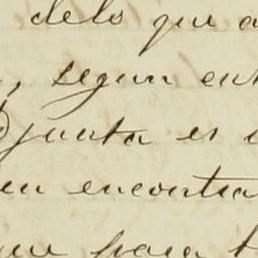 delo que a
, segun ent
junta es u
en encontra
que para t